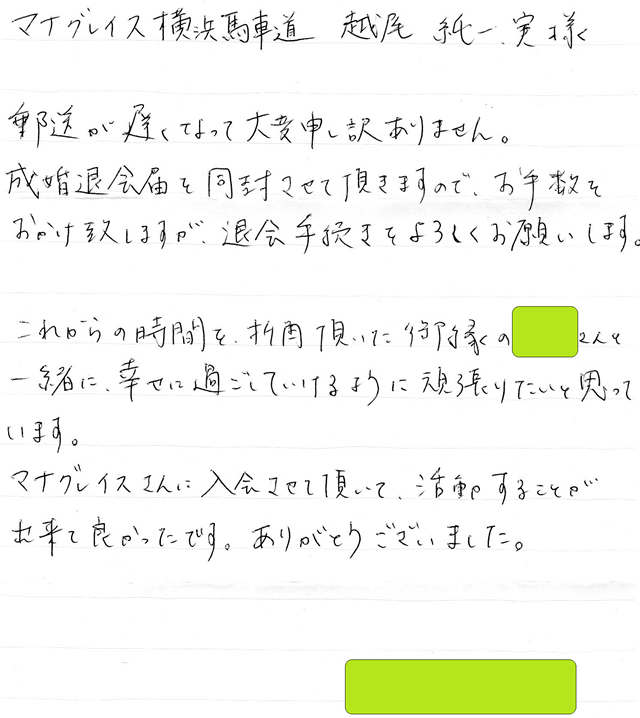 マナグレイス横浜馬車道 越尾 純一、実様
郵送が遅くなって大変申し訳ありません。
成婚退会届を同封させて頂きますので、お手数を
おかけ致しますが、退会手続きをよろしくお願いします。
これからの時間を、折角頂いた御縁の さんと
一緒に、幸せに過ごしていけるように頑張りたいと思って
います。
マナグレイスさんに入会させて頂いて、活動することが
出来て良かったです。ありがとうございました。